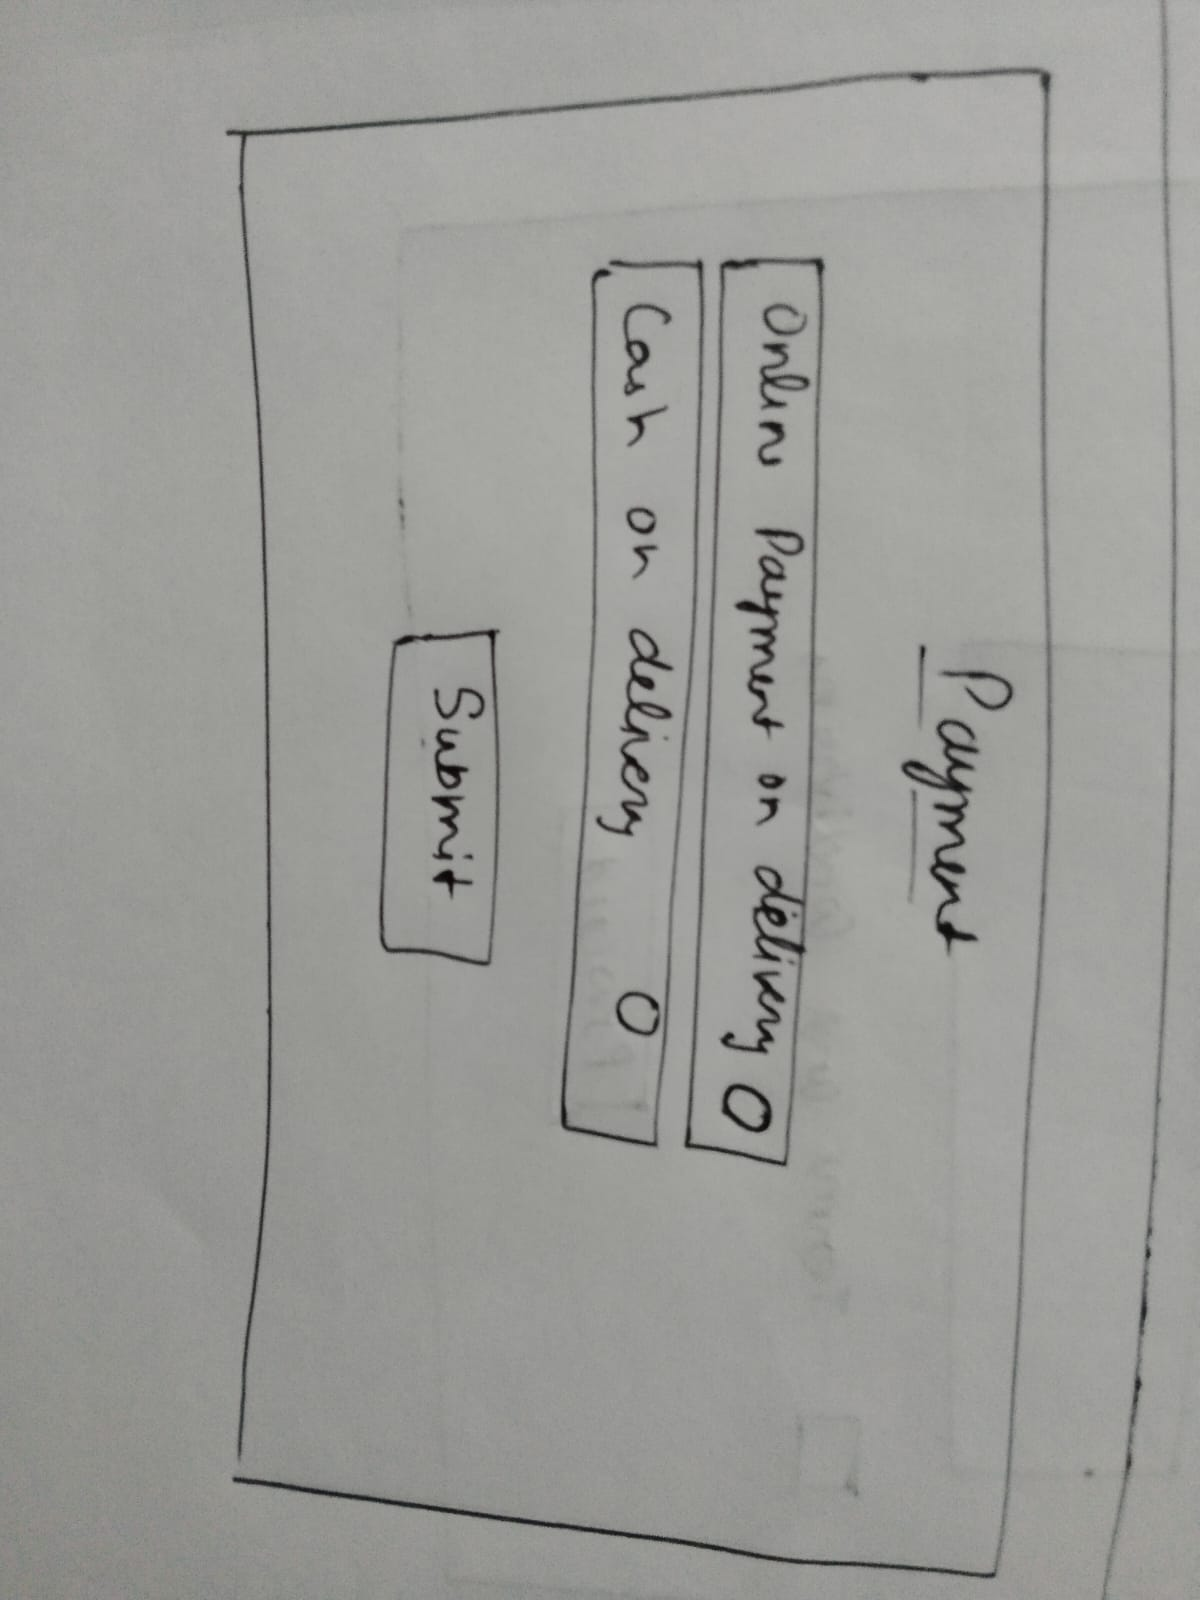 Payment
Online Payment on delivery O
Cash on delivery O
Submit